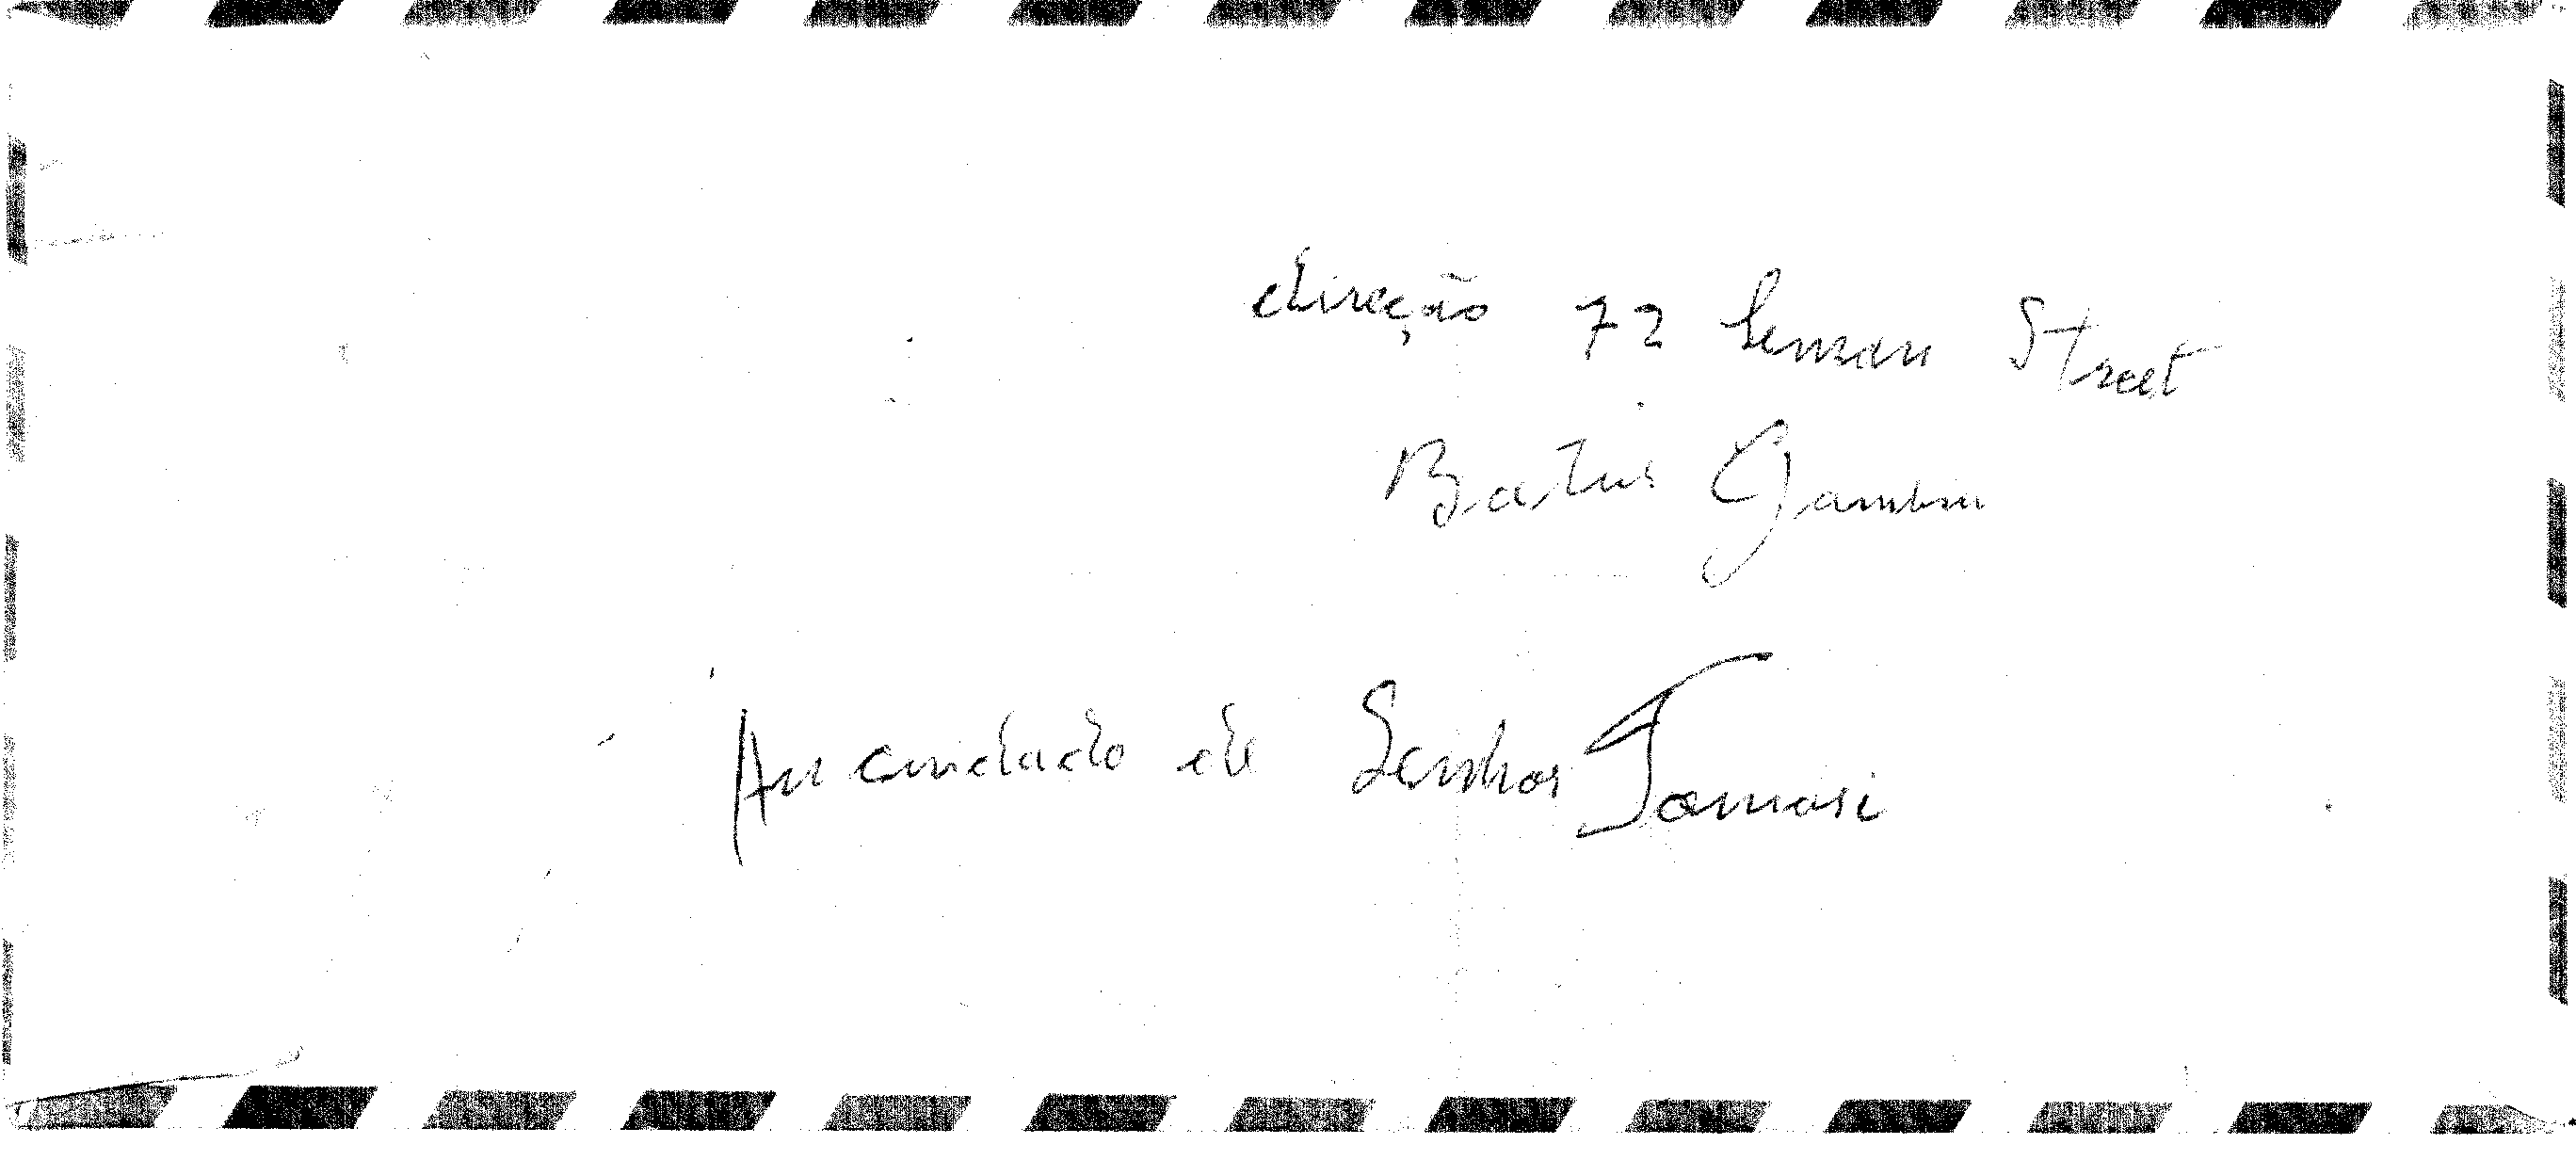 direção 72 Leman Street
Batus Gambia
Au cuidado de Senhor Tomasi